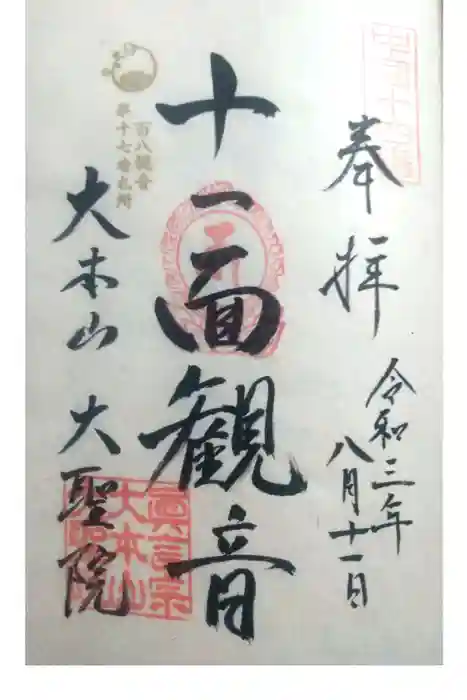 奉拝
令和三年
八月十一日
十一面観音
百八観音
第十七番札所
大本山 大聖院
真言宗
大本山